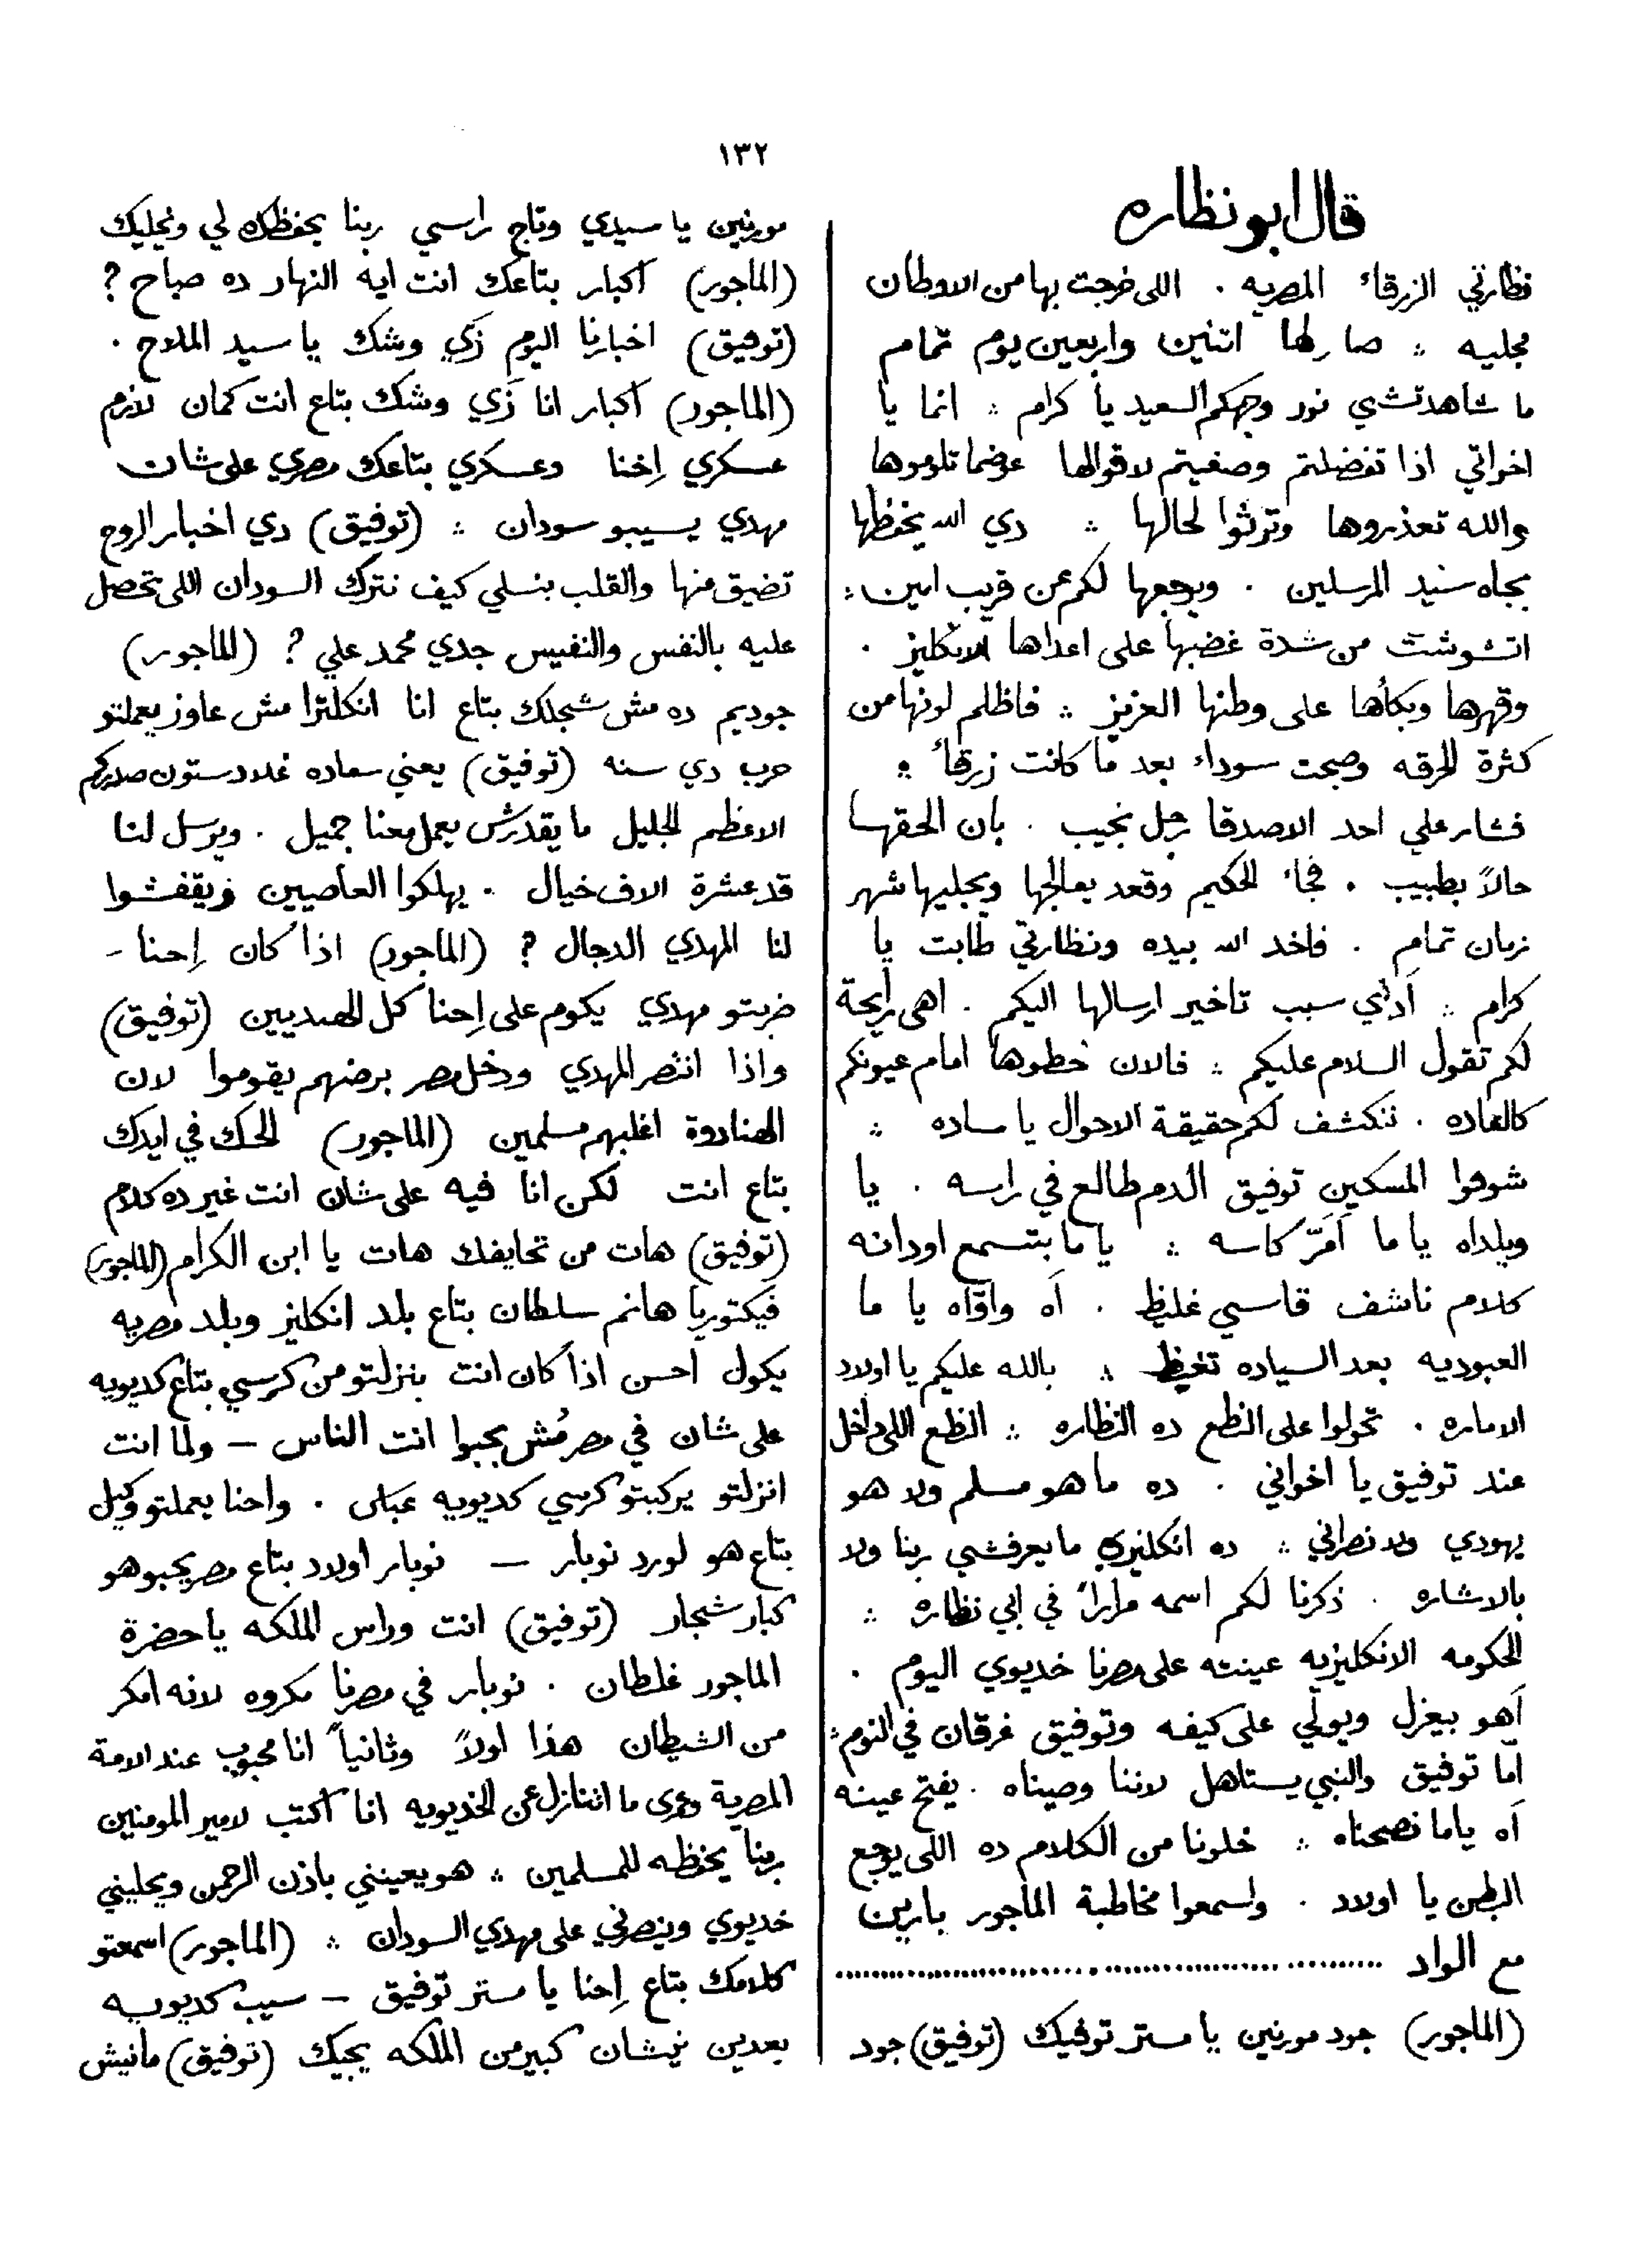 ١٣٢
قال ابو نظاره
نظارتي الزرقاء المصريه . اللى خرجت بها من الاوطان
مجليه ؞ صار لها اتنين واربعين يوم تمام
ما شاهدتشي نور وجهكم السعيد يا كرام ؞ انما يا
اخواتي اذا تفضلتم وصغيتم لاقوالها عوضما تلوموها
والله تعذروها وترثوا لحالها ؞ دي الله يحفظها
بجاه سنيد المرسلين . ويرجعها لكم عن قريب امين ؞
اتشوشت من شدة غضبها على اعداها الانكليز .
وقهرها وبكاها على وطنها العزيز ؞ فاظلم لونها من
كثرة الحرقه وصبحت سوداء بعد ما كانت زرقاء ؞
فشار علي احد الاصدقا رجل نجيب . بان الحقها
حالاً بطبيب . فجاء الحكيم وقعد يعالجها ويجليها شهر
زمان تمام . فاخد الله بيده ونظارتي طابت يا
كرام ؞ آدني سبب تاخير ارسالها اليكم . اهى رايحة
لكم تقول السلام عليكم ؞ فالان حطوها امام عيونكم
كالعاده . تنكشف لكم حقيقة الاحوال يا ساده ؞
شوفوا المسكين توفيق الدم طالع في راسه . يا
ويلداه يا ما اَمَرّ كاسه ؞ يا ما بتسمع اودانه
كلام ناشف قاسي غليظ . آه وآوّاه يا ما
العبوديه بعد السياده تغيظ ؞ بالله عليكم يا اولاد
الاماره . تحولوا على النظع ده النظاره ؞ النظع اللى داخل
عند توفيق يا اخواني . ده ما هو مسلم ولا هو
يهودي ولا نصراني ؞ ده انكليزي ما يعرفشي ربنا ولا
بالاشاره . ذكرنا لكم اسمه مراراً في ابي نظاره ؞
الحكومه الانكليزيه عينته على مصرنا خديوي اليوم .
آهو بيعزل ويولّي على كيفه وتوفيق غرقان في النوم ؞
امّا توفيق والنبي يستاهل لاننا وصيناه . يفتح عينه
آه ياما نصحناه ؞ خلونا من الكلام ده اللى يوجع
البطن يا اولاد . واسمعوا مخاطبة الماجور بارين
مع الواد ........................................
(الماجور) جود مورنين يا مستر توفيك (توفيق) جود
مورنين يا سيدي وتاج راسي ربنا يحفظك لي ويخليك
(الماجور) اكبار بتاعك انت ايه النهار ده صباح ?
(توفيق) اخبارنا اليوم زَي وشك يا سيد الملاح .
(الماجور) اكبار انا زَي وشك بتاع انت كمان لازم
عسكري اِحنا وعسكري بتاعك مصري على شان
مهدي يسيبو سودان ؞ (توفيق) دي اخبار الروح
تضيق منها والقلب ينسلي كيف نترك السودان اللى تحصل
عليه بالنفس والنفيس جدي محمد علي ? (الماجور)
جوديم ده مش شجلك بتاع انا انكلترا مش عاوز يعملتو
حرب دي سنه (توفيق) يعني سعاده غلادستون صدركم
الاعظم الجليل ما يقدرش يعمل معنا جميل . ويرسل لنا
قد عشرة الاف خيال . يهلكوا العاصيين ويقفشوا
لنا المهدي الدجال ? (الماجور) اذا كان اِحنا -
ضربتو مهدي يكوم على اِحنا كل الهنديين (توفيق)
واذا انتصر المهدي ودخل مصر برضهم يقوموا لان
الهنادوة اغلبهم مسلمين (الماجور) الحك في ايدك
بتاع انت لكن انا فيه على شان انت غير ده كلام
(توفيق) هات من تحايفك هات يا ابن الكرام (الماجور)
فيكتوريا هانم سلطان بتاع بلد انكليز وبلد مصريه
يكول احسن اذا كان انت ينزلتو من كرسي بتاع كديويه
على شان في مصر مُش يجبوا انت الناس – ولما انت
انزلتو يركبتو كرسي كديويه عباس . واحنا يعملتو وكيل
بتاع هو لورد نوبار – نوبار اولاد بتاع مصر يحبو هو
كبار شجار (توفيق) انت وراس الملكه يا حضرة
الماجور غلطان . نوبار في مصرنا مكروه لانه امكر
من الشيطان هذا اولاً وثانياً انا محبوب عند الامة
المصرية وعمرى ما اتنازل عن الخديويه انا اكتب لامير المومنين
ربنا يحفظه للمسلمين ؞ هو يعينني باذن الرحمن ويخليني
خديوي وينصرني على مهدي السودان ؞ (الماجور) اسمعتو
كلامك بتاع اِحنا يا مستر توفيق – سيب كديويه
بعدين نيشان كبير من الملكه يجيك (توفيق) مانيش